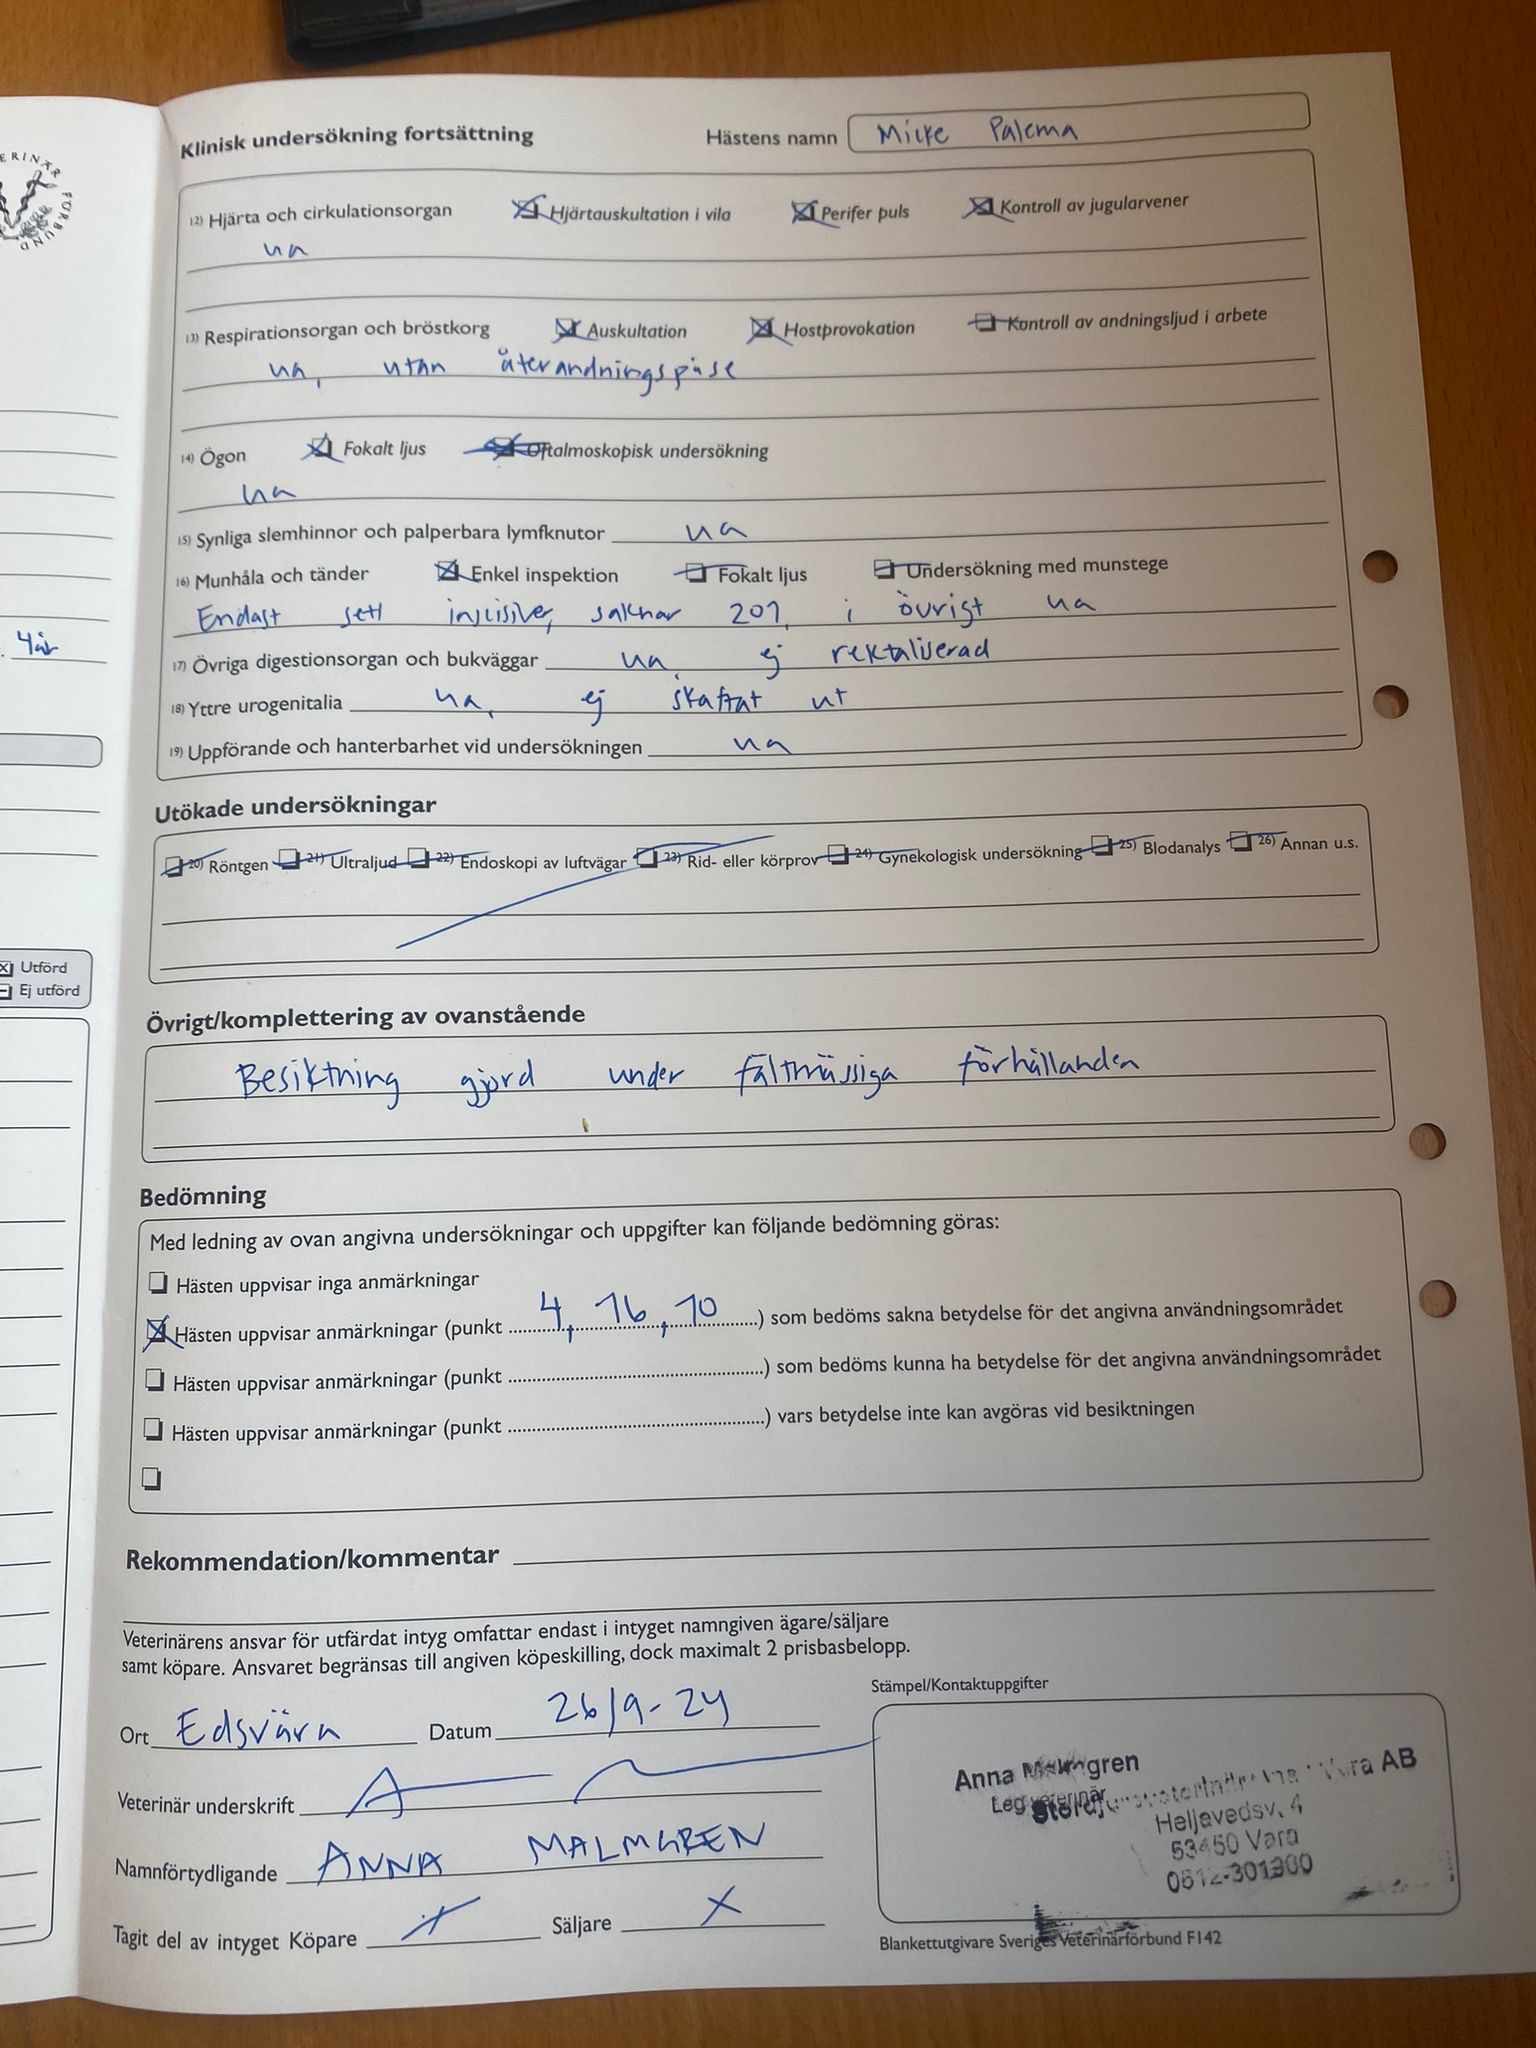 ERINÄR FÖRBUND
4år
Utförd
Ej utförd
Klinisk undersökning fortsättning
Hästens namn Micke Palema
12) Hjärta och cirkulationsorgan Hjärtauskultation i vila Perifer puls Kontroll av jugularvener
ua
13) Respirationsorgan och bröstkorg Auskultation Hostprovokation Kontroll av andningsljud i arbete
ua, utan återandningspåse
14) Ögon Fokalt ljus Oftalmoskopisk undersökning
ua
15) Synliga slemhinnor och palperbara lymfknutor ua
16) Munhåla och tänder Enkel inspektion Fokalt ljus Undersökning med munstege
Endast sett incisiver, saknar 201, i övrigt ua
17) Övriga digestionsorgan och bukväggar ua, ej rektaliserad
18) Yttre urogenitalia ua, ej skaftat ut
19) Uppförande och hanterbarhet vid undersökningen ua
Utökade undersökningar
20) Röntgen 21) Ultraljud 22) Endoskopi av luftvägar 23) Rid- eller körprov 24) Gynekologisk undersökning 25) Blodanalys 26) Annan u.s.
Övrigt/komplettering av ovanstående
Besiktning gjord under fältmässiga förhållanden
Bedömning
Med ledning av ovan angivna undersökningar och uppgifter kan följande bedömning göras:
Hästen uppvisar inga anmärkningar
Hästen uppvisar anmärkningar (punkt 4, 16, 10) som bedöms sakna betydelse för det angivna användningsområdet
Hästen uppvisar anmärkningar (punkt ..........) som bedöms kunna ha betydelse för det angivna användningsområdet
Hästen uppvisar anmärkningar (punkt ..........) vars betydelse inte kan avgöras vid besiktningen
Rekommendation/kommentar
Veterinärens ansvar för utfärdat intyg omfattar endast i intyget namngiven ägare/säljare
samt köpare. Ansvaret begränsas till angiven köpeskilling, dock maximalt 2 prisbasbelopp.
Stämpel/Kontaktuppgifter
Ort Edsvära Datum 26/9-24
Veterinär underskrift
Namnförtydligande ANNA MALMGREN
Tagit del av intyget Köpare X Säljare X
Anna Malmgren
Leg veterinär
Vara AB
Heljevedsv. 4
53450 Vara
0512-301300
Blankettutgivare Sveriges Veterinärförbund F142